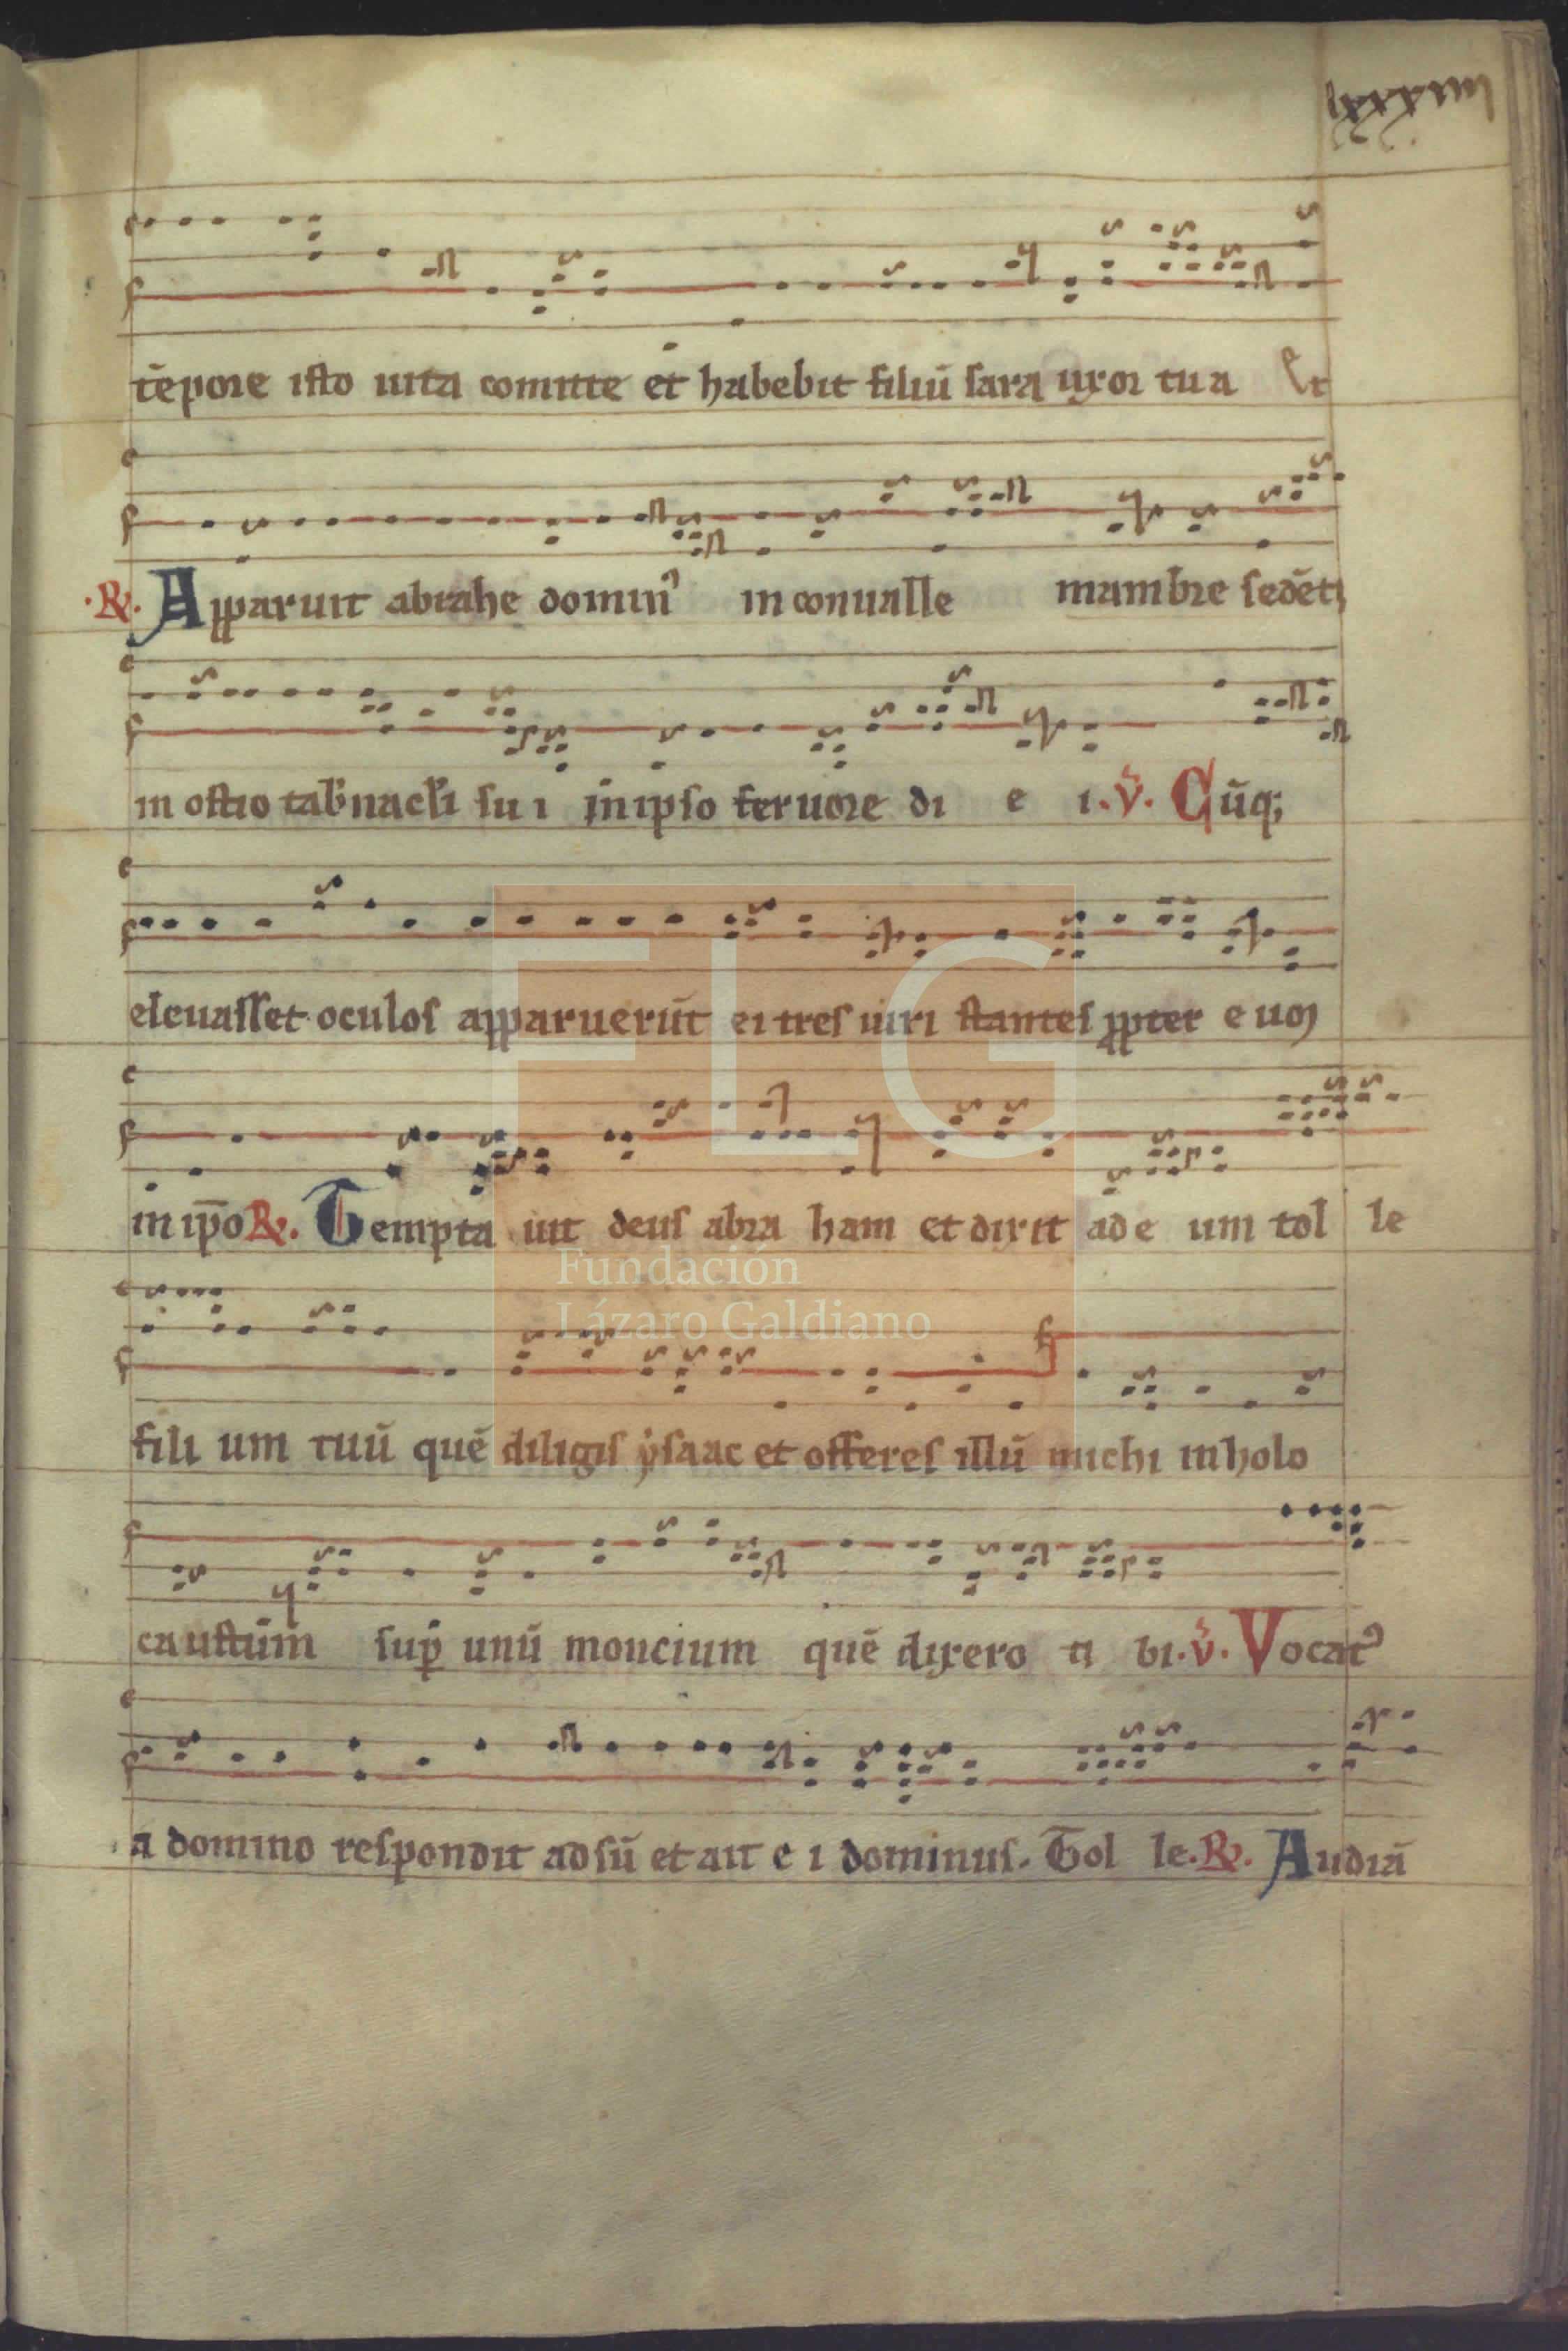 lxxxxiiij
tēpore isto uita comitte et habebit filiū sara uxor tua Et
.R. Apparuit abrahe dominꝰ in conualle mambre sedēti
in ostio tab̄nacl̄i su i in ipso feruore di e i. v̄. Cūq;
eleuasset oculos apparuerūt ei tres uiri stantes ꝓpter e uoꝫ
in ip̄o R. Tempta uit deus abra ham et dixit ad e um tol le
fili um tuū quē diligis ẏsaac et offeres illū michi in holo
caustum sup̄ unū moncium quē dixero ti bi. v̄. Vocatꝰ
a domino respondit adsū et ait e i dominus. Tol le. R. Audiā
FLG
Fundación
Lázaro Galdiano